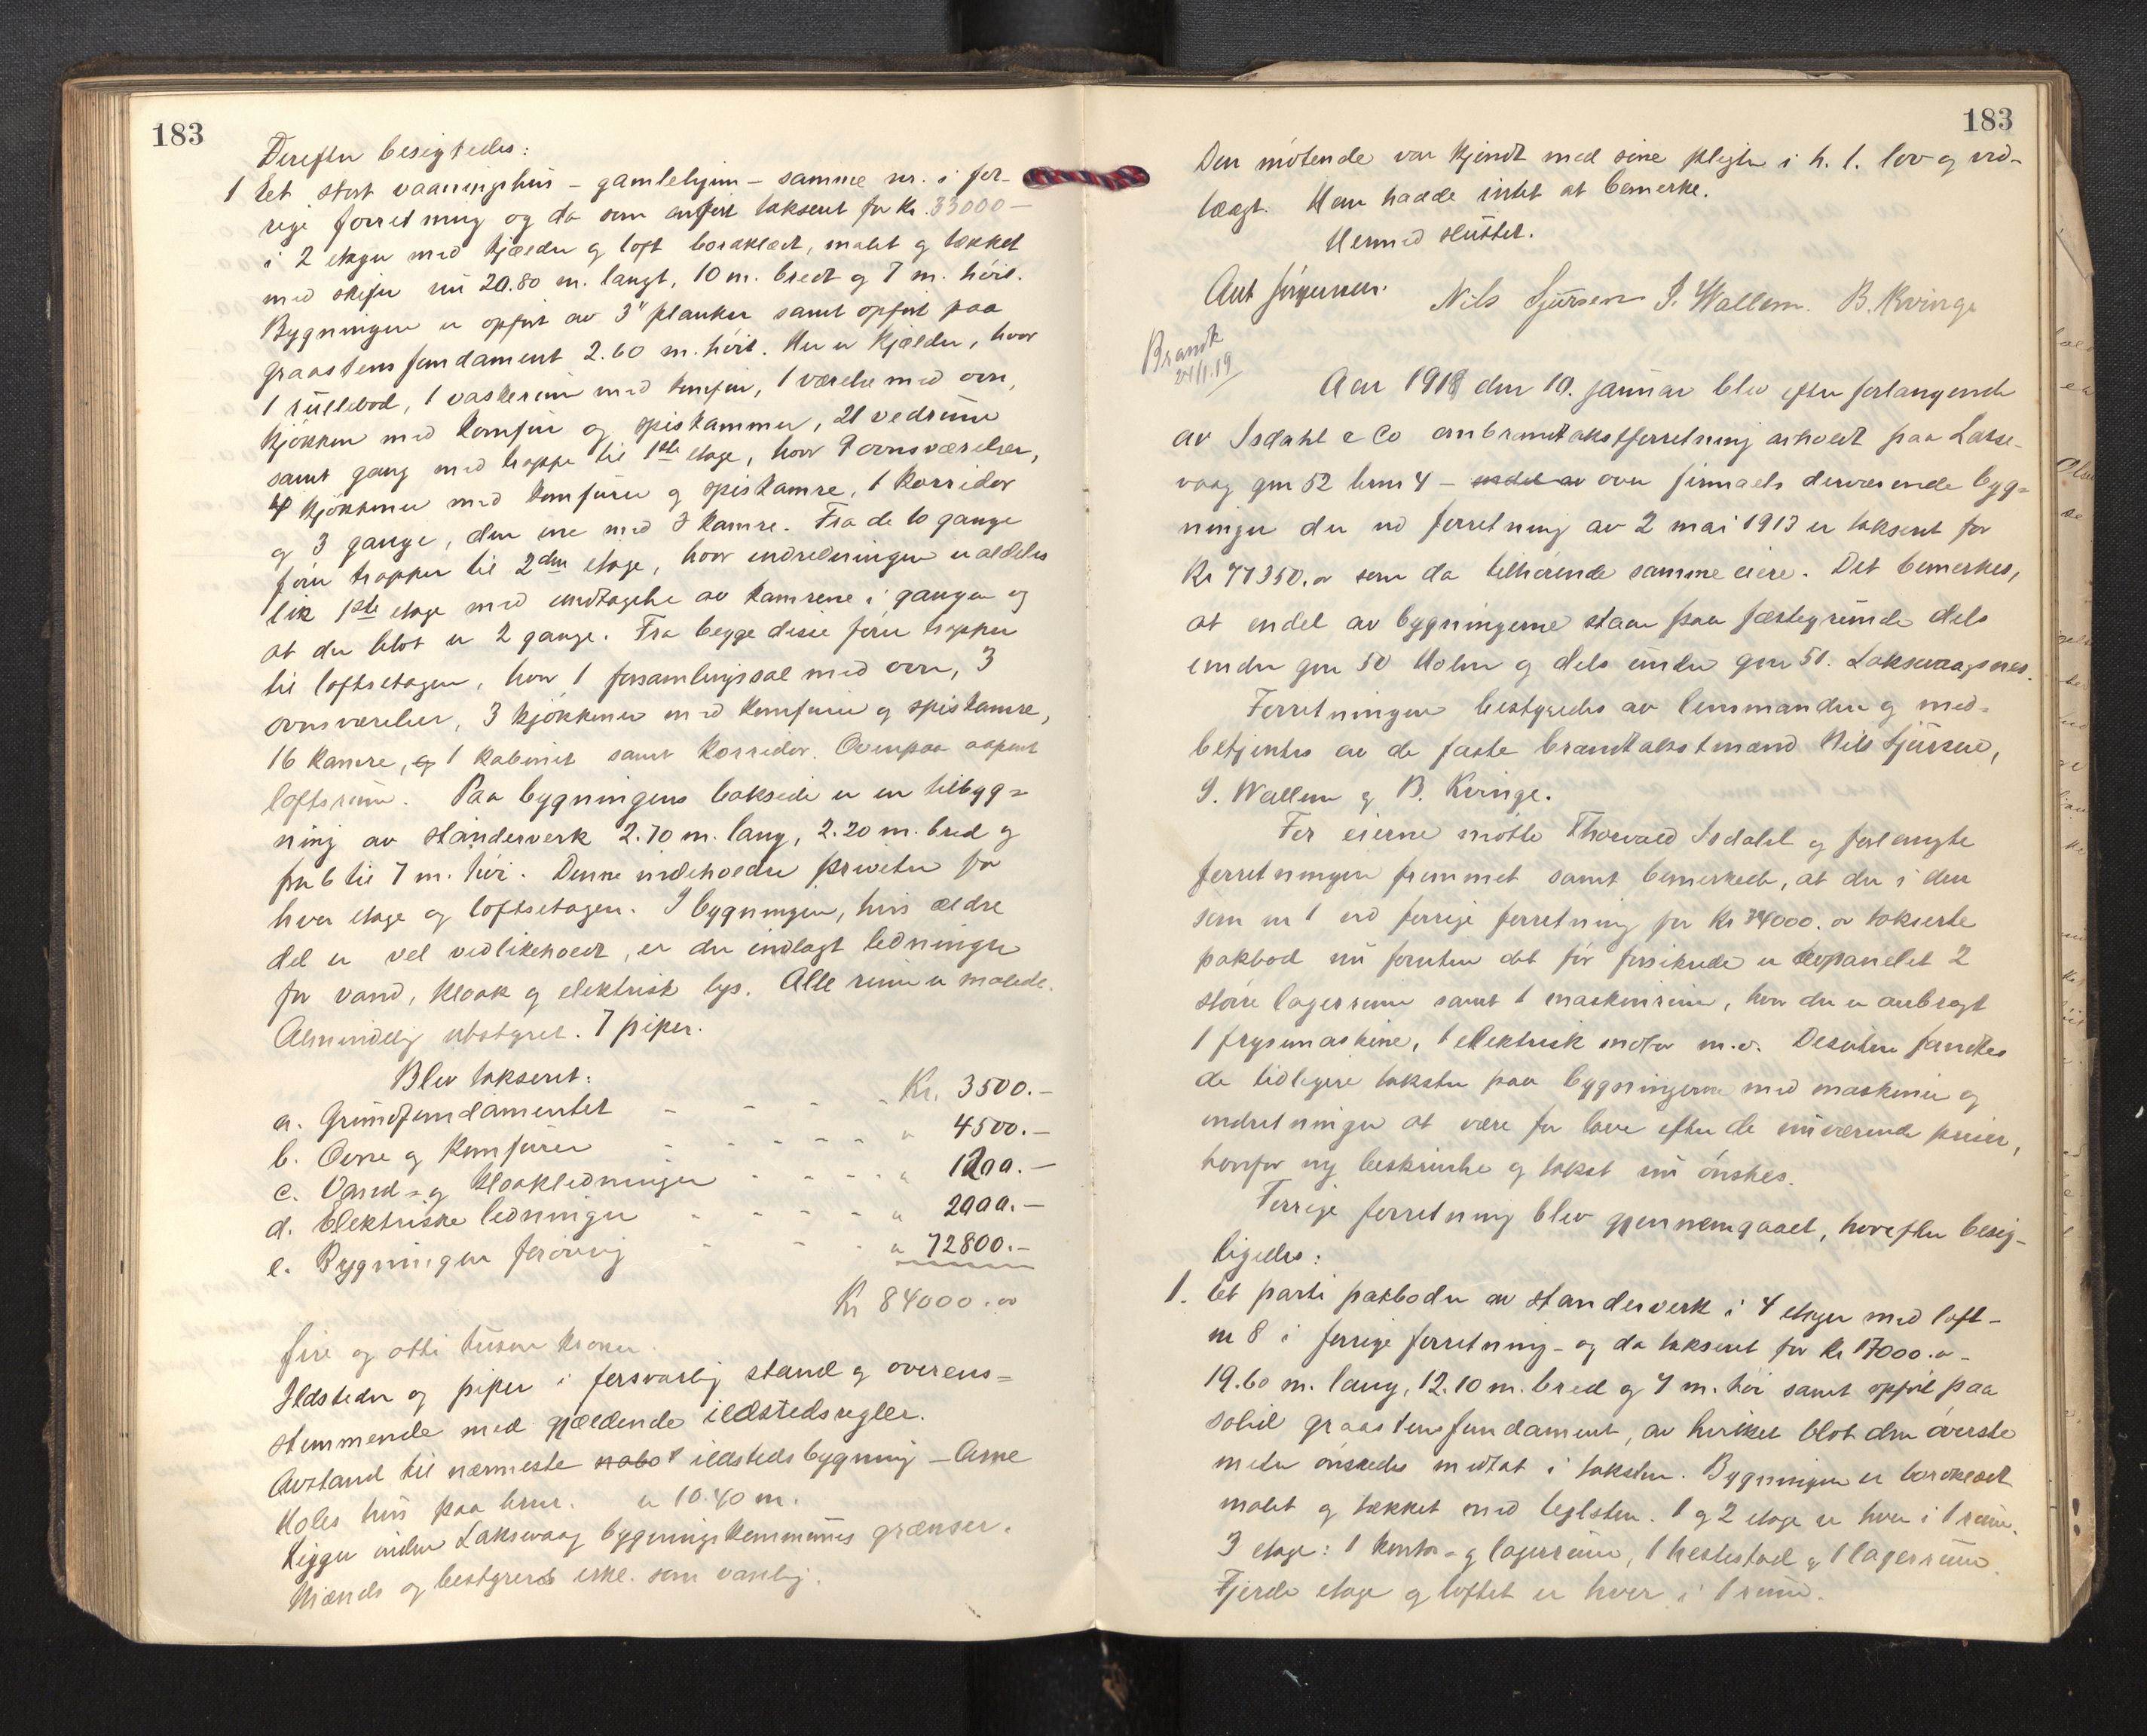 183
Derefter besigtedes:
1 Et stort vaaningshus - gamlehjem - samme nr. i for-
rige forretning og da som anført takseret for Kr. 33000 -
i 2 etager med kjælder og loft bordklædt, malet og tækket
med skifer nu 20.80 m. langt, 10 m. bredt og 7 m. høit.
Bygningen er opført av 3" planker samt opført paa
graastensfundament 2.60 m. høit. Her er kjælder, hvor
1 rullebod, 1 vaskerum med komfur, 1 værelse med ovn,
kjøkken med komfur og spiskammer, 21 vedrum
samt gang med trappe til 1ste etage, hvor 9 ovnsværelser,
4 kjøkkener med komfurer og spiskamre, 1 korridor
og 3 gange, den ene med 3 kamre. Fra de to gange
fører trapper til 2den etage, hvor indredningen er aldeles
lik 1ste etage med undtagelse av kamrene i gangen og
at der blot er 2 gange. Fra begge disse fører trapper
til loftsetagen, hvor 1 forsamlingssal med ovn, 3
ovnsværelser, 3 kjøkkener med komfurer og spiskamre,
16 kamre, og 1 kabinet samt korridor. Ovenpaa aapent
loftsrum. Paa bygningens bakside er en tilbyg=
ning av standerverk 2.70 m. lang, 2.20 m. bred og
fra 6 til 7 m. høi. Denne indeholder priveter for
hver etage og loftsetagen. I bygningen, hvis ældre
del er vel vedlikeholdt, er der indlagt ledninger
for vand, kloak og elektrisk lys. Alle rum er malede.
Almindelig utstyret. 7 piper.
Blev takseret:
a. Grundfundamentet - - - - Kr. 3500.-
b. Ovne og komfurer - - - - - " 4500.-
c. Vand- og kloakledninger - - - - " 1200.-
d. Elektriske ledninger - - - - - " 2000.-
e. Bygningen forøvrig - - - - " 72800.-
Kr 84000.00
fire og otti tusen kroner.
Ildsteder og piper i forsvarlig stand og overens=
stemmende med gjældende ildstedsregler.
Avstand til nærmeste nabo ildstedsbygning - Arne
Holes hus paa brnr. er 10.40 m.
Ligger inden Laksevaag bygningskommunes grænser.
Mænds og bestyrers erkl. som vanlig.
183
Den møtende var kjendt med sine plegter i h. t. lov og ved-
tægt. Han hadde intet at bemerke.
Hermed sluttet.
Ant Jørgensen. Nils Sjursen I. Wallem. B. Kvinge
Brandt
24/1.19
Aar 1918 den 10. januar blev efter forlangende
av Isdahl & Co ombrandtakstforretning avholdt paa Lakse-
vaag gnr 52 brnr 4 - endel av over firmaets derværende byg=
ninger der ved forretning av 2 mai 1913 er takseret for
Kr 77350.00 som da tilhørende samme eiere. Det bemerkes,
at endel av bygningerne staar paa fæstegrunde dels
under gnr 50 Holen og dels under gnr 51. Laksevaagsnes.
Forretningen bestyredes av lensmanden og med=
betjentes av de faste brandtakstmænd Nils Sjursen,
I. Wallem og B. Kvinge.
For eierne møtte Thorvald Isdahl og forlangte
forretningen fremmet samt bemerkede, at der i den
som nr 1 ved forrige forretning for Kr 34000.00 takserte
pakbod nu foruten det før forsikrede er avpanelet 2
større lagerrum samt 1 maskinrum, hvor der er anbragt
1 frysemaskine, 1 elektrisk motor m.v. Desuten fandtes
de tidligere takster paa bygningerne med maskiner og
indretninger at være for lave efter de nuværende priser,
hvorfor ny beskrivelse og takst nu ønskes.
Forrige forretning blev gjennemgaaet, hvorefter besig-
tigedes:
1. Et parti pakboder av standerverk i 4 etager med loft -
nr 8 i forrige forretning - og da takseret for Kr 17000.00 -
19.60 m. lang, 12.10 m. bred og 7 m. høi samt opført paa
solid graastensfundament, av hvilket blot den øverste
meter ønskedes medtat i taksten. Bygningen er bordklædt
malet og tækket med teglsten. 1 og 2 etage er hver i 1 rum.
3 etage: 1 kontor- og lagerrum, 1 hestestald og 1 lagerrum.
Fjerde etage og loftet er hver i 1 rum.